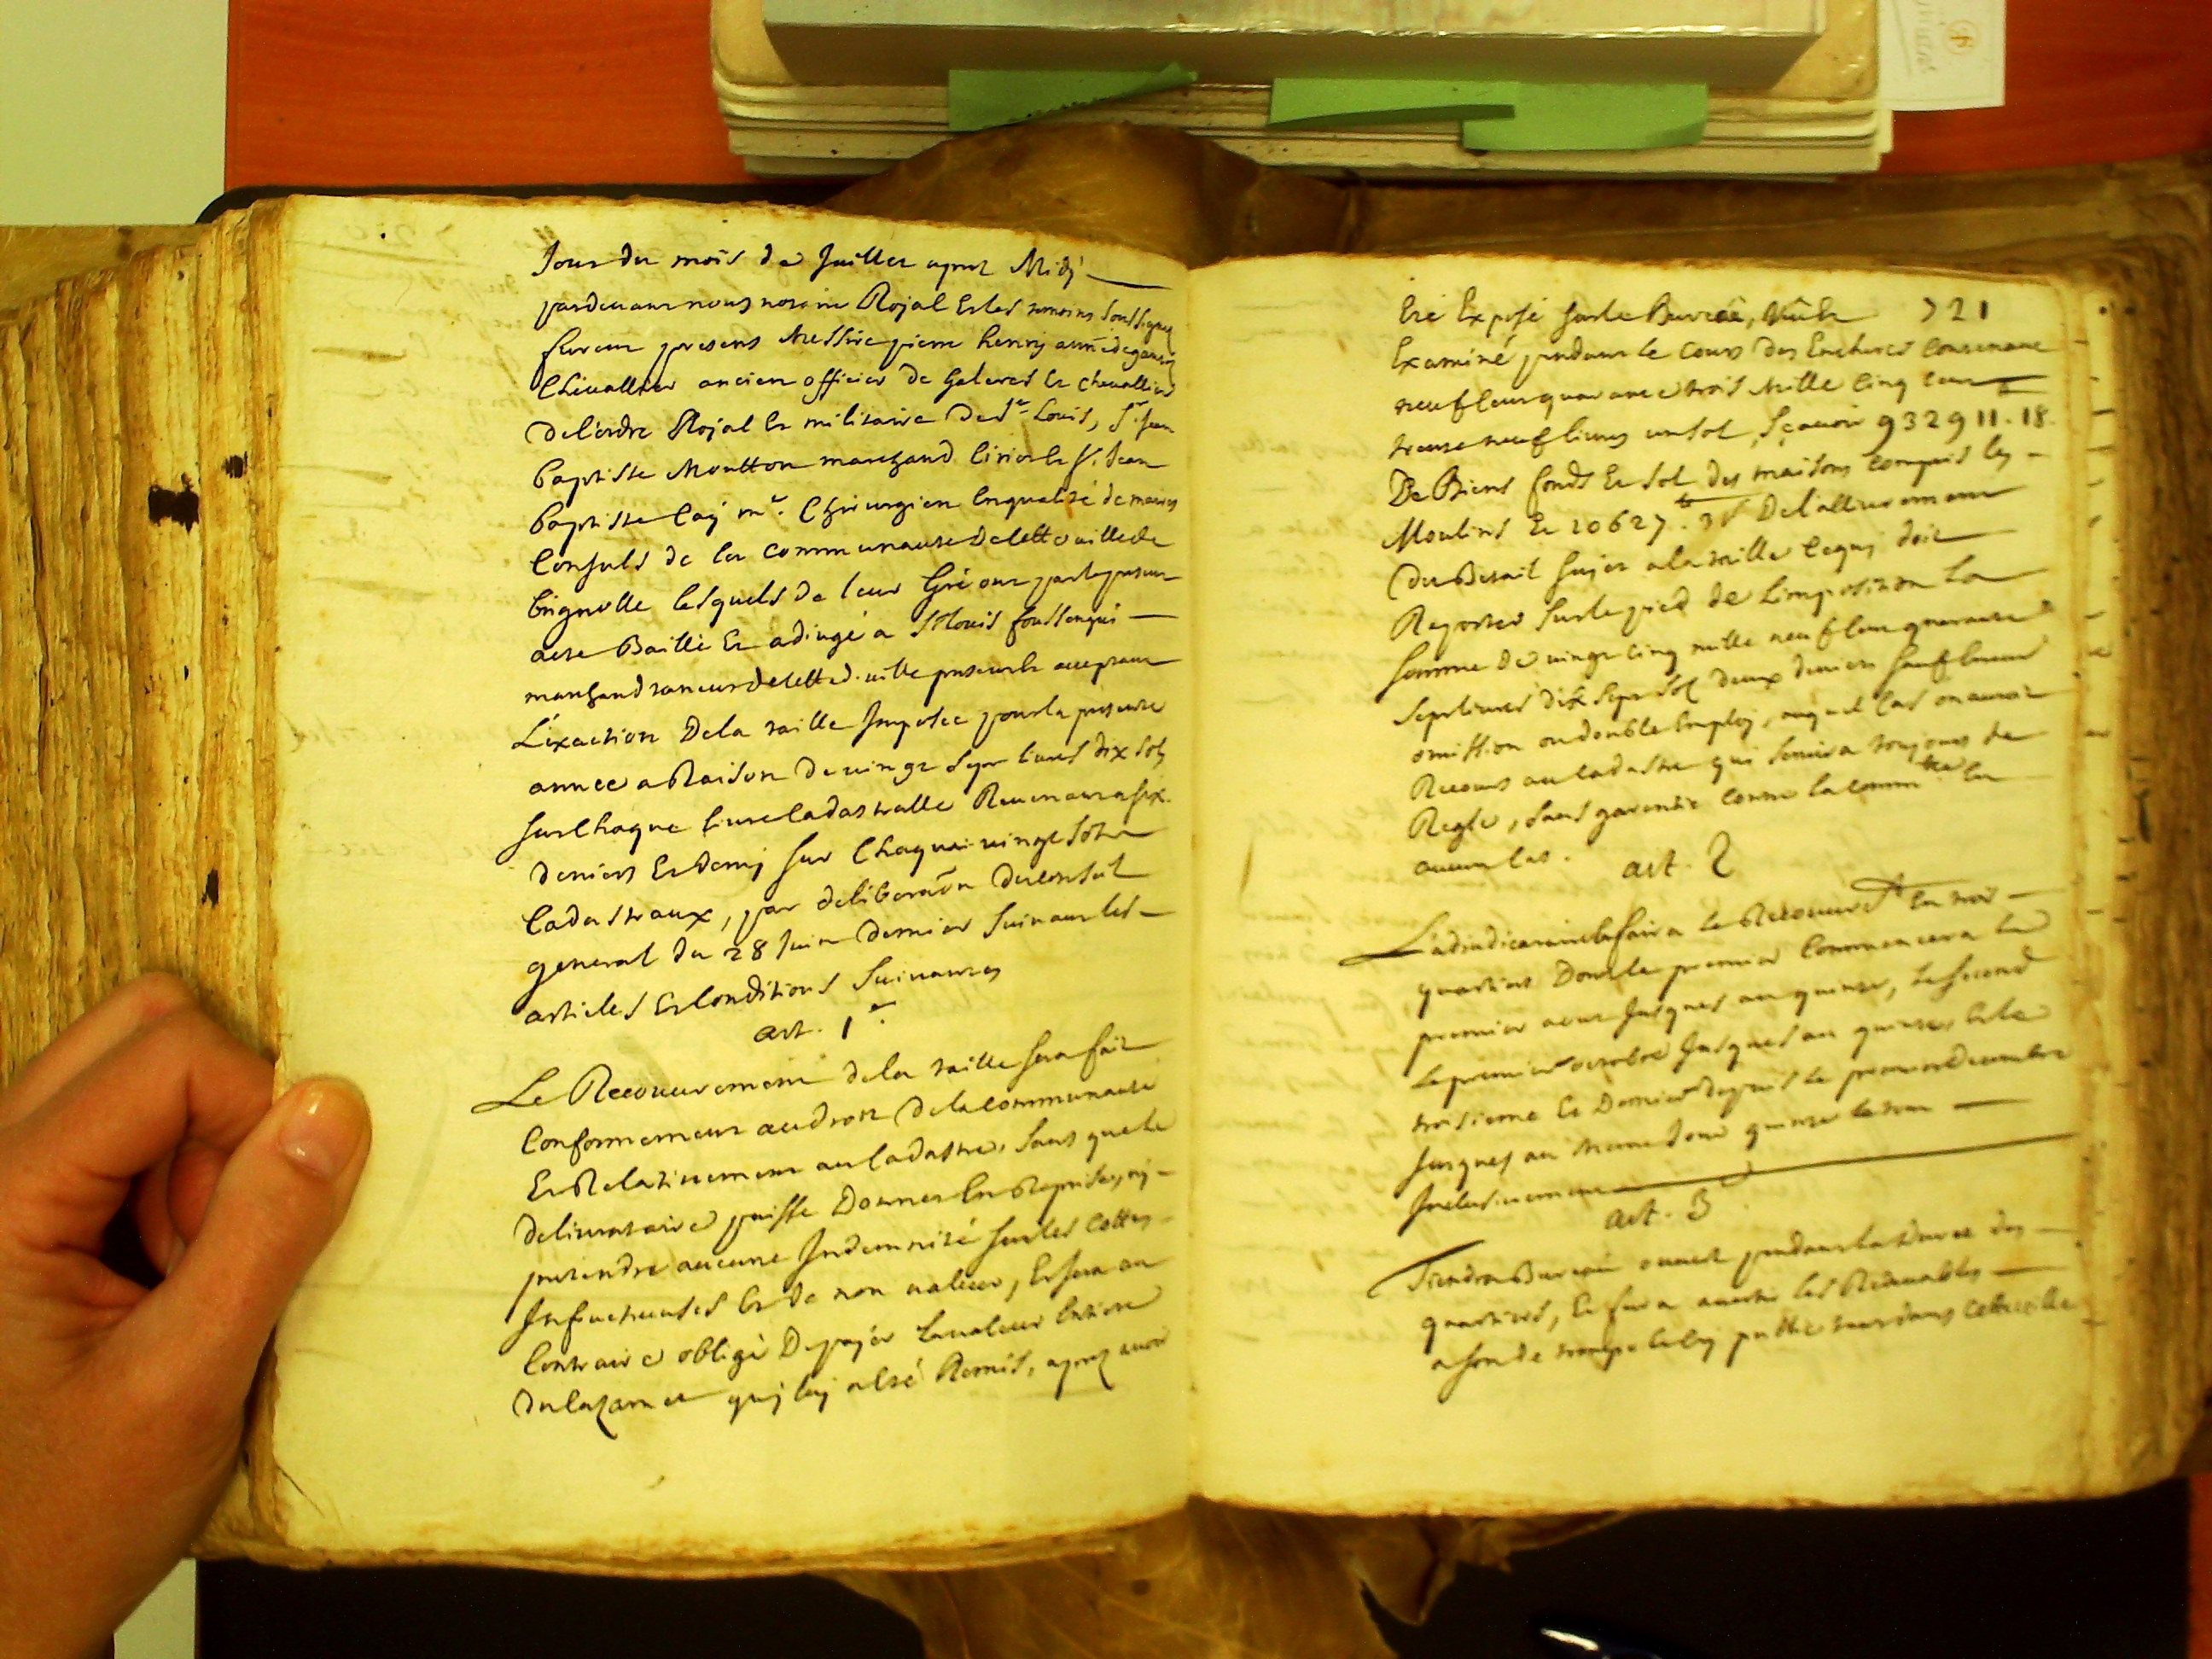 Jour du mois de Juillet apres Midy
pardevant nous notaire Royal Et les temoins soussignes
furent presens Messire pierre henry
Chevallier ancien officier de Galeres Et chevallier
de l'ordre Royal Et militaire de St Louis, Sr Jean
baptiste Moutton marchand Cirier Et Sr Jean
baptiste mr. Chirurgien En qualité de maires
Consuls de la Communauté de cette ville de
brignolle lesquels de leur Gré ont par le present
acte Baillé Et adjugé a Sr Louis
marchand taneur de cette d. ville present Et acceptant
L'exaction De la taille Imposée pour la presente
année a Raison de vingt sept livres dix sols
sur Chaque livre Cadastralle Revenant a six
deniers Et demy sur Chaque vingt sols
Cadastraux, par deliberaõn du Conseil
general du 28 Juin dernier suivant les
articles Et Conditions Suivantes
art. 1er.
Le Recouvrement de la taille sera fait
Conformement au droit de la Communauté
Et Relativement au Cadastre, sans que le
delivrataire puisse Donner En Reprise, ny
pretendre aucune Indemnité sur les Cottes
Infructueuses Et de non valeur, Et sera au
Contraire obligé De payer la valeur Entiere
du Cazernet quy luy a Eté Remis, apres avoir
Eté Exposé sur le Bureau, 721
Examiné pendant le cours des Encheres Contenant
neuf Cens quarante trois Mille Cinq Cens
trente neuf livres un sol, Sçavoir 932911.18
De Biens fonds Et sol des maisons compris les
Moulins Et 10627. De l'allivrement
du Betail sujet a la taille Ce quy doit
Raporter sur le pied de L'imposition La
somme de vingt Cinq mille neuf Cens quarante
sept livres dix sept sols deux deniers sauf Erreur
omission ou double Employ, auquel Cas on auroit
Recours au Cadastre qui servira toujours de
Regle, sans garentie Contre la Commté En
aucun Cas.
art. 2
L'adjudicataire fera le Recouvrt En trois
quartiers Dont le premier Commencera Le
premier aout Jusques au quinze, Le second
Le premier octobre Jusques au quinze, Et le
troisieme Et Dernier depuis Le premier Decembre
Jusques au trente
Inclusivement
art. 3
Tiendra Bureau ouvert pendant la Durée des
quartiers, Et fera avertir les Redevables
a son de trompe Et Cry public tant dans Cette ville